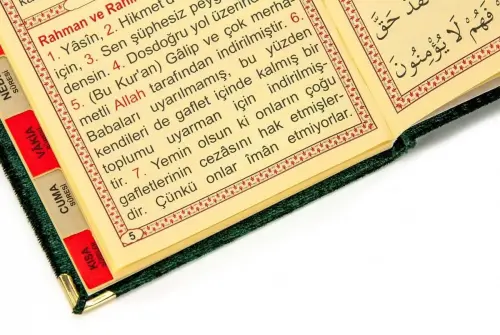 Rahman ve Rahî
1. Yâsîn, 2. Hikmet d
için, 3. Sen şüphesiz peyg
densin. 4. Dosdoğru yol üzerin
5. (Bu Kur'an) Gâlip ve çok merha-
metli Allah tarafından indirilmiştir. 6.
Babaları uyarılmamış, bu yüzden
kendileri de gaflet içinde kalmış bir
toplumu uyarman için indirilmiş-
tir. 7. Yemin olsun ki onların çoğu
gafletlerinin cezâsını hak etmişler-
dir. Çünkü onlar îmân etmiyorlar.
5
حَقَّ
فَهُمْ لَا يُؤْمِنُونَ
SÛRESİ
VÂKIA
CUMA
SÛRESİ
KISA